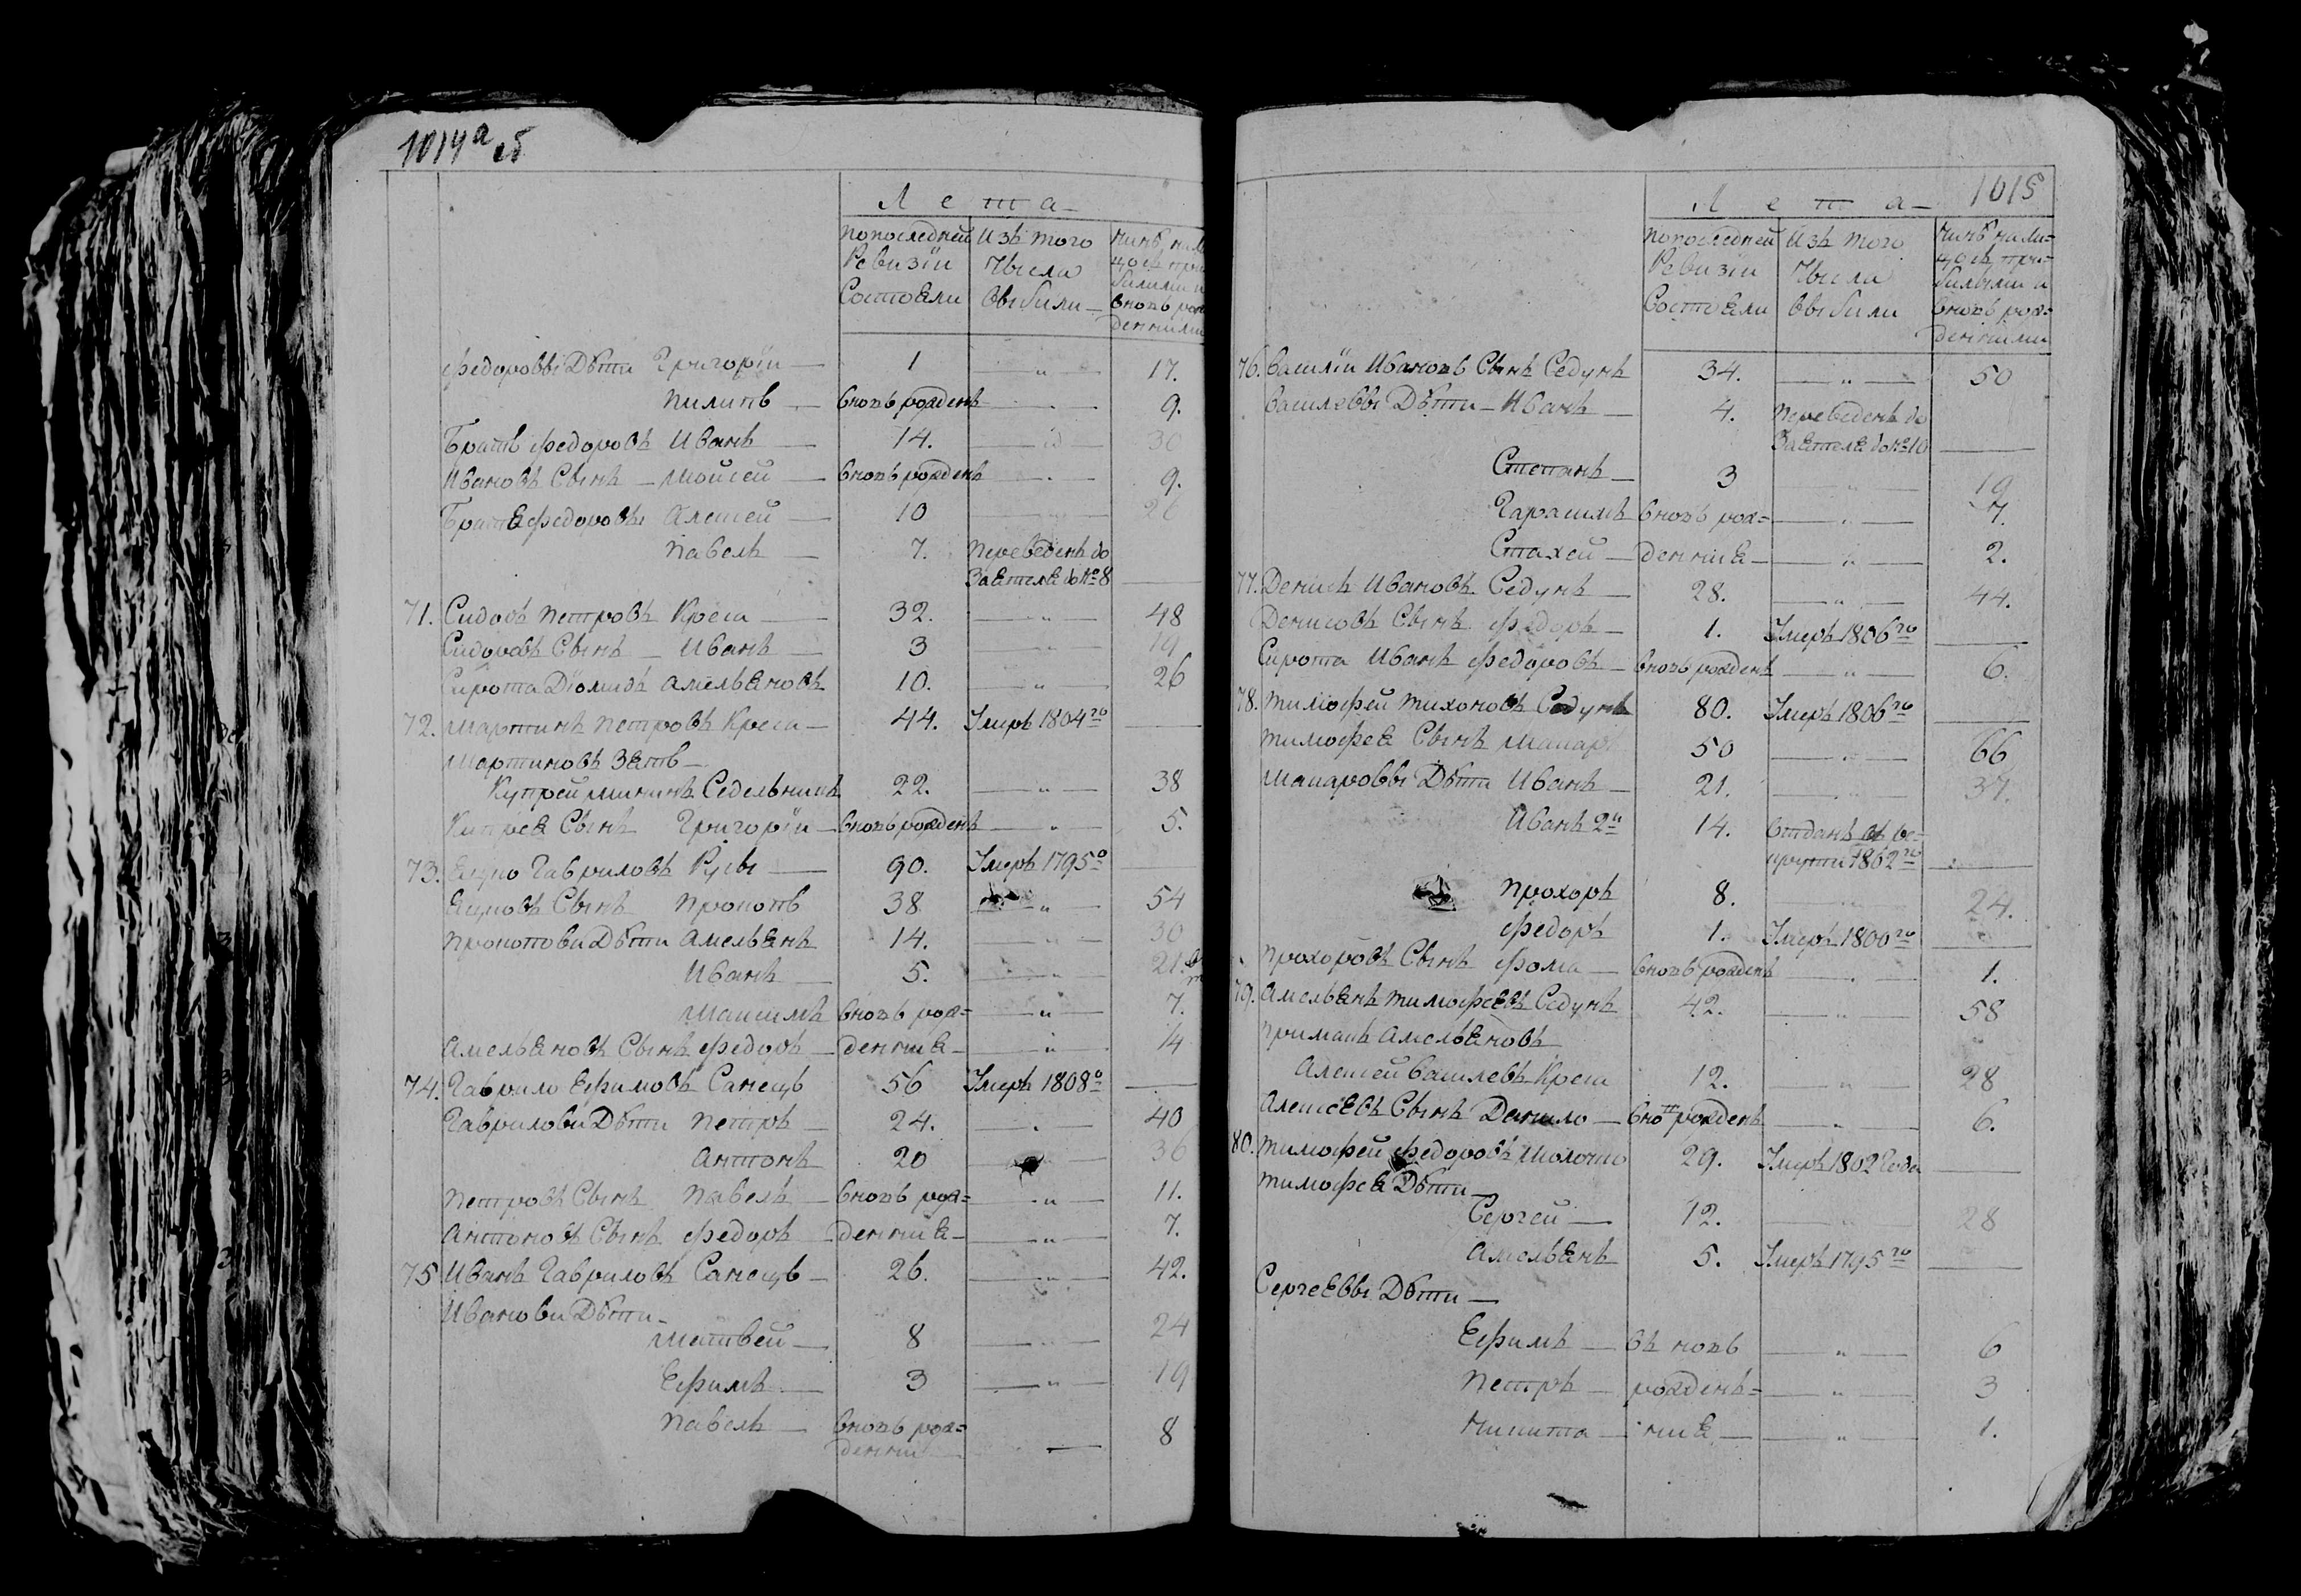 1014а об
Л е т а
попоследней Изъ того Нинѣ нали
Ревизіи Числа цо съ при
Состоѧли Выбили былими и
вновь рож
денними
Федоровы Дѣти Григорій 1 17.
Пилипъ вновь рожденъ 9.
Братъ Федоровъ Иванъ 14. 30
Ивановъ Сынъ Мойсей вновь рожденъ 9.
Братѧ Федоровы Алексей 10 26
Павелъ 7. Переведенъ до
Заѧтелѧ до № 8
71. Сидоръ Петровъ Креса 32. 48
Сидоровъ Сынъ Иванъ 3 19
Сирота Діомидъ Амельѧновъ 10. 26
72. Мартинъ Петровъ Креса 44. Умеръ 1804го
Мартиновъ Зѧть
Купрей Мининъ Седельникъ 22. 38
Купреѧ Сынъ Григорій вновь рожденъ 5.
73. Гавриловъ Русы 90. Умеръ 1795о
Сынъ Прокопъ 38 54
Прокопови Дѣти Амельѧнъ 14. 30
Иванъ 5. 21.
Максимъ вновь рож= 7.
Амельѧновъ Сынъ Федоръ денниѧ 14
74. Гаврило Ефимовъ Санецъ 56 Умеръ 1808о
Гаврилови Дѣти Петръ 24. 40
Антонъ 20 36
Петровъ Сынъ Павелъ вновь рож= 11.
Антоновъ Сынъ Федоръ денниѧ 7.
75 Иванъ Гавриловъ Санецъ 26. 42.
Иванови Дѣти
Матвей 8 24
Ефимъ 3 19
Павелъ вновь рож= 8
денни
1015
Л е т а
попоследней Изъ того Нинѣ нали=
Ревизіи Числа цо съ при=
Состоѧли Выбили былыми и
вновь рож=
денними
76. Василій Ивановъ Сынъ Седунъ 34. 50
Василевы Дѣти Иванъ 4. Переведенъ до
Заѧтелѧ до № 10
Степанъ 3 19
Гарасимъ вновь рож= 7.
Стахей денниѧ 2.
77. Денисъ Ивановъ Седунъ 28. 44.
Денисовъ Сынъ Федоръ 1. Умеръ 1806го
Сирота Иванъ Федоровъ вновь рожденъ 6.
78. Тимофей Тихоновъ Седунъ 80. Умеръ 1806го
Тимофеѧ Сынъ Макаръ 50 66
Макаровы Дѣти Иванъ 21. 37.
Иванъ 2й 14. Отданъ въ ре=
крути 1802го
Прохоръ 8. 24.
Федоръ 1. Умеръ 1800го
Прохоровъ Сынъ Фома вновь рожденъ 1.
79. Амельѧнъ Тимофеѧвъ Седунъ 42. 58
Примакъ Амельѧновъ
Алексей Василевъ Креса 12. 28
Алексеѧвъ Сынъ Данило вновь рожденъ 6.
80. Тимофей Федоровъ Молочко 29. Умеръ 1802 Года
Тимофеѧ Дѣти
Сергей 12. 28
Амельѧнъ 5. Умеръ 1795го
Сергеѧвы Дѣти
Ефимъ въ новь 6
Петръ рожденъ= 3
Никита ниѧ 1.